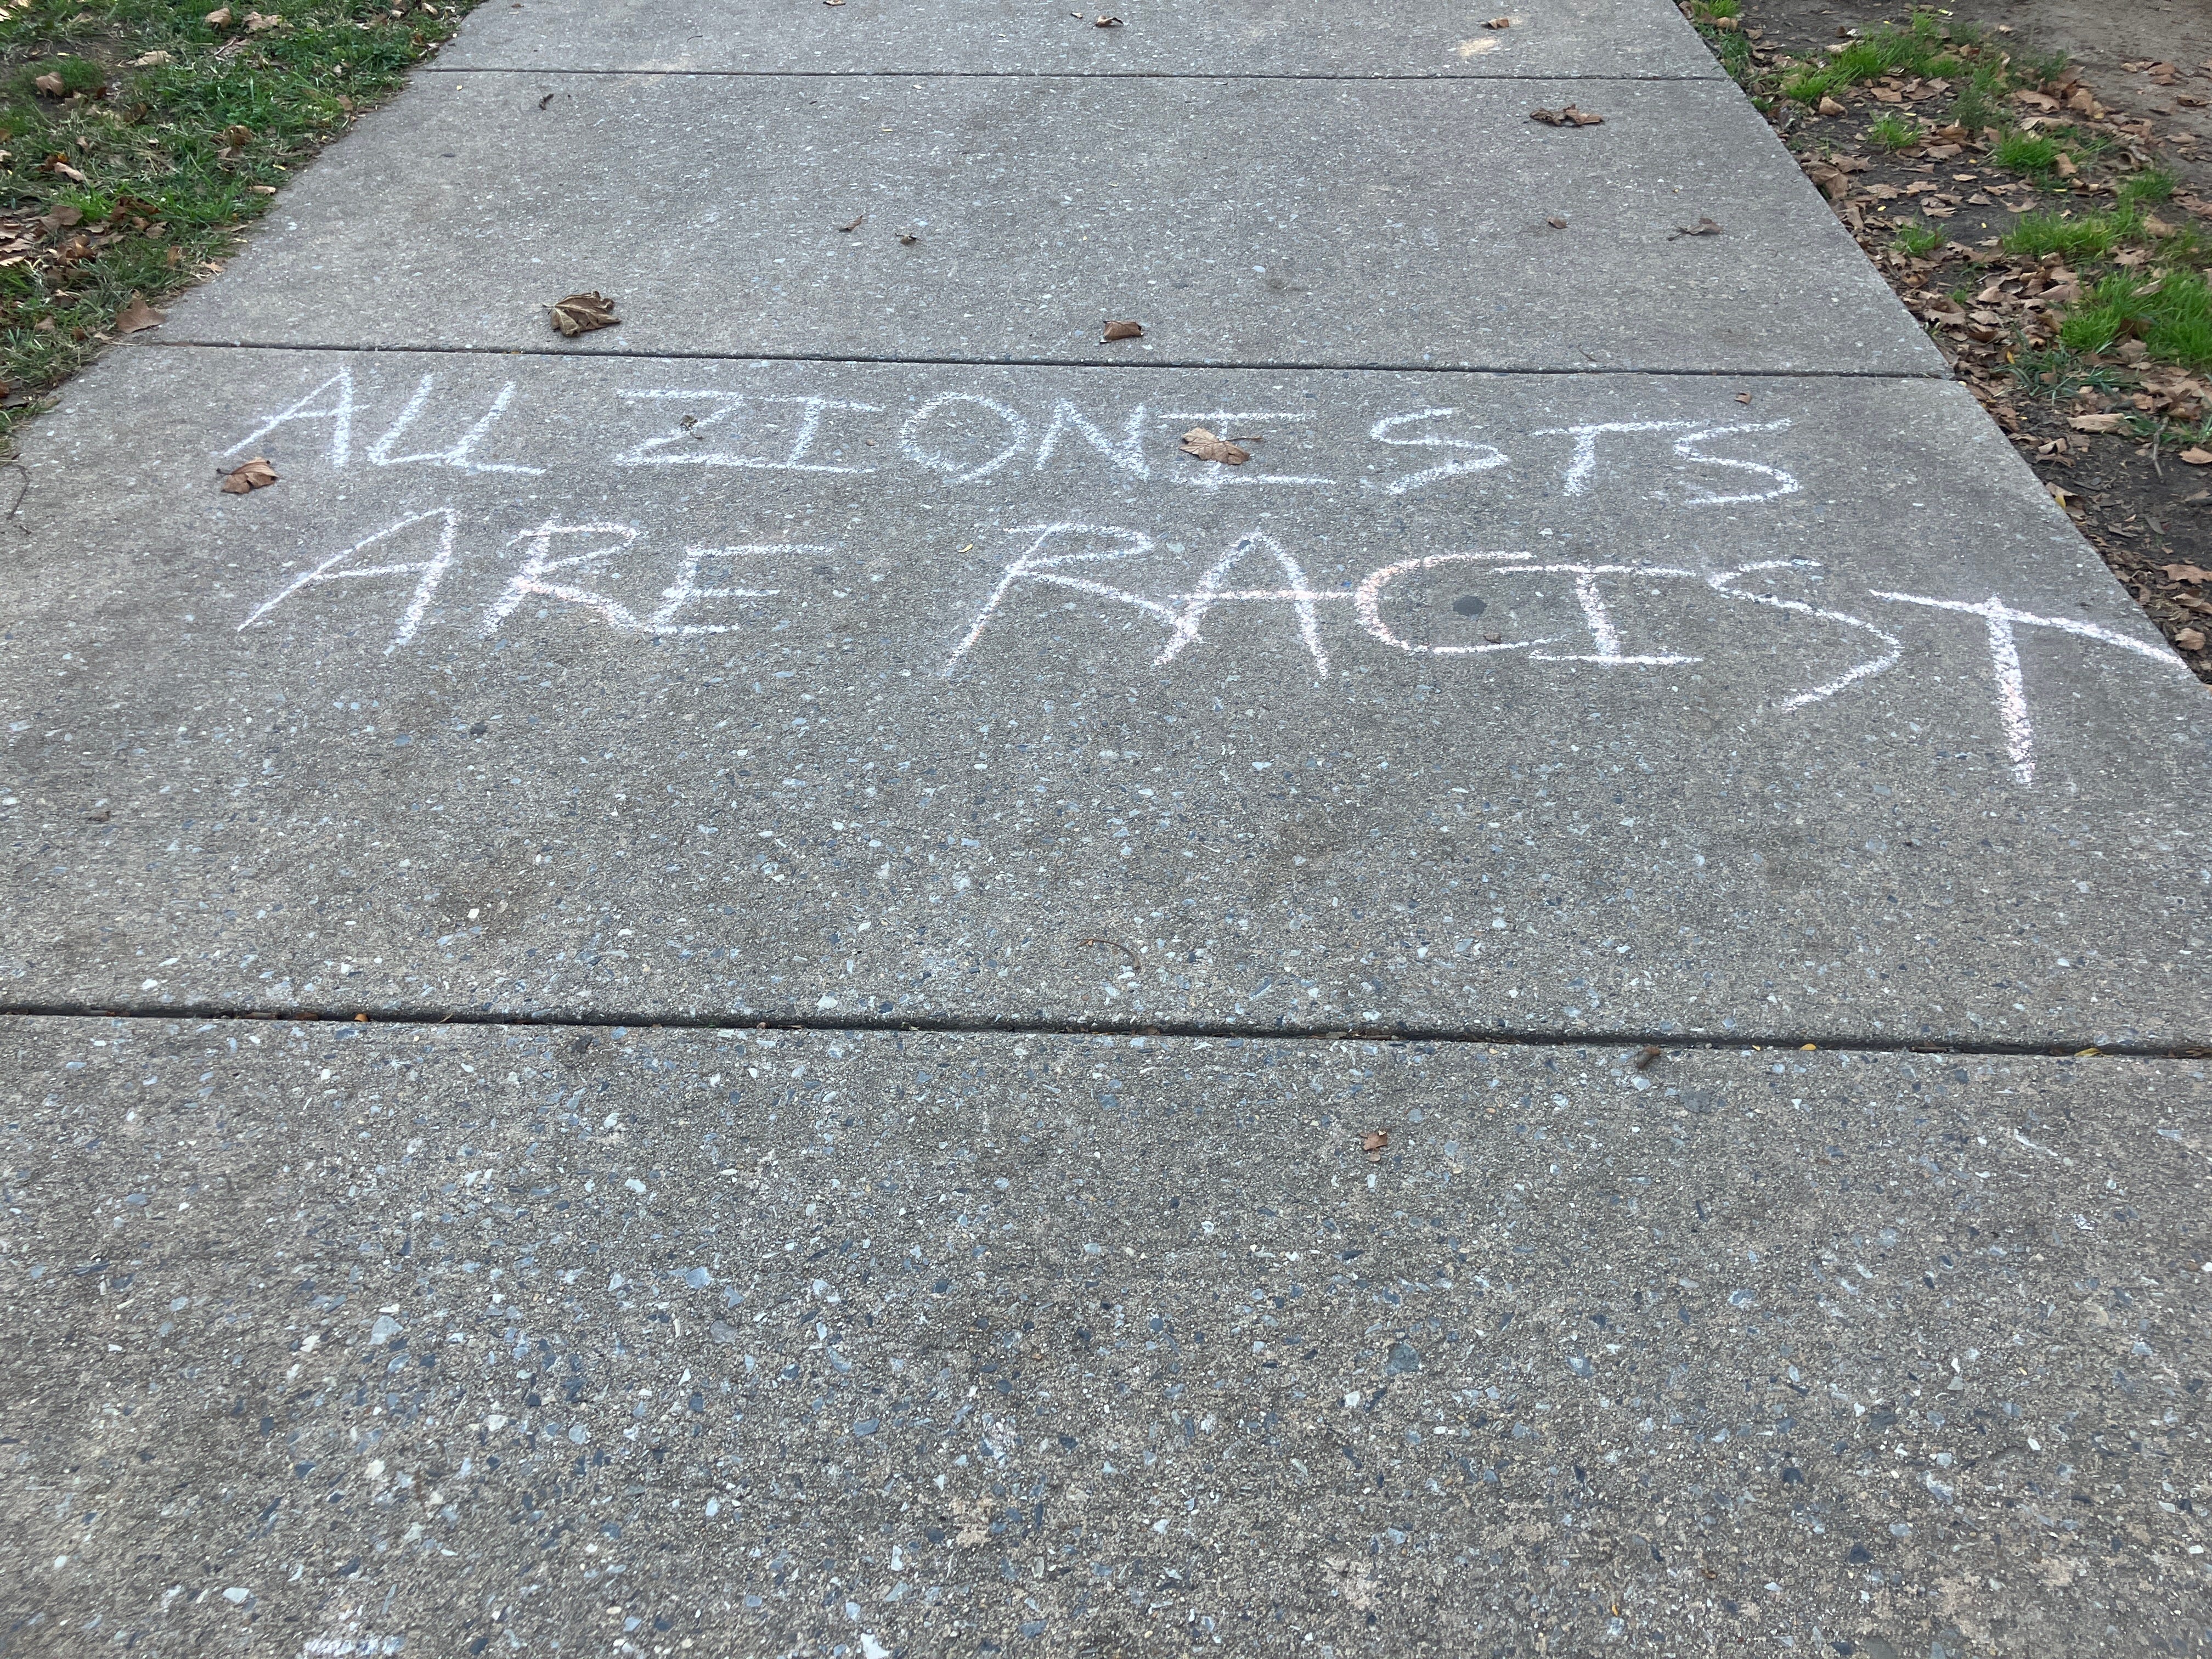 ALL ZIONISTS
ARE RACIST